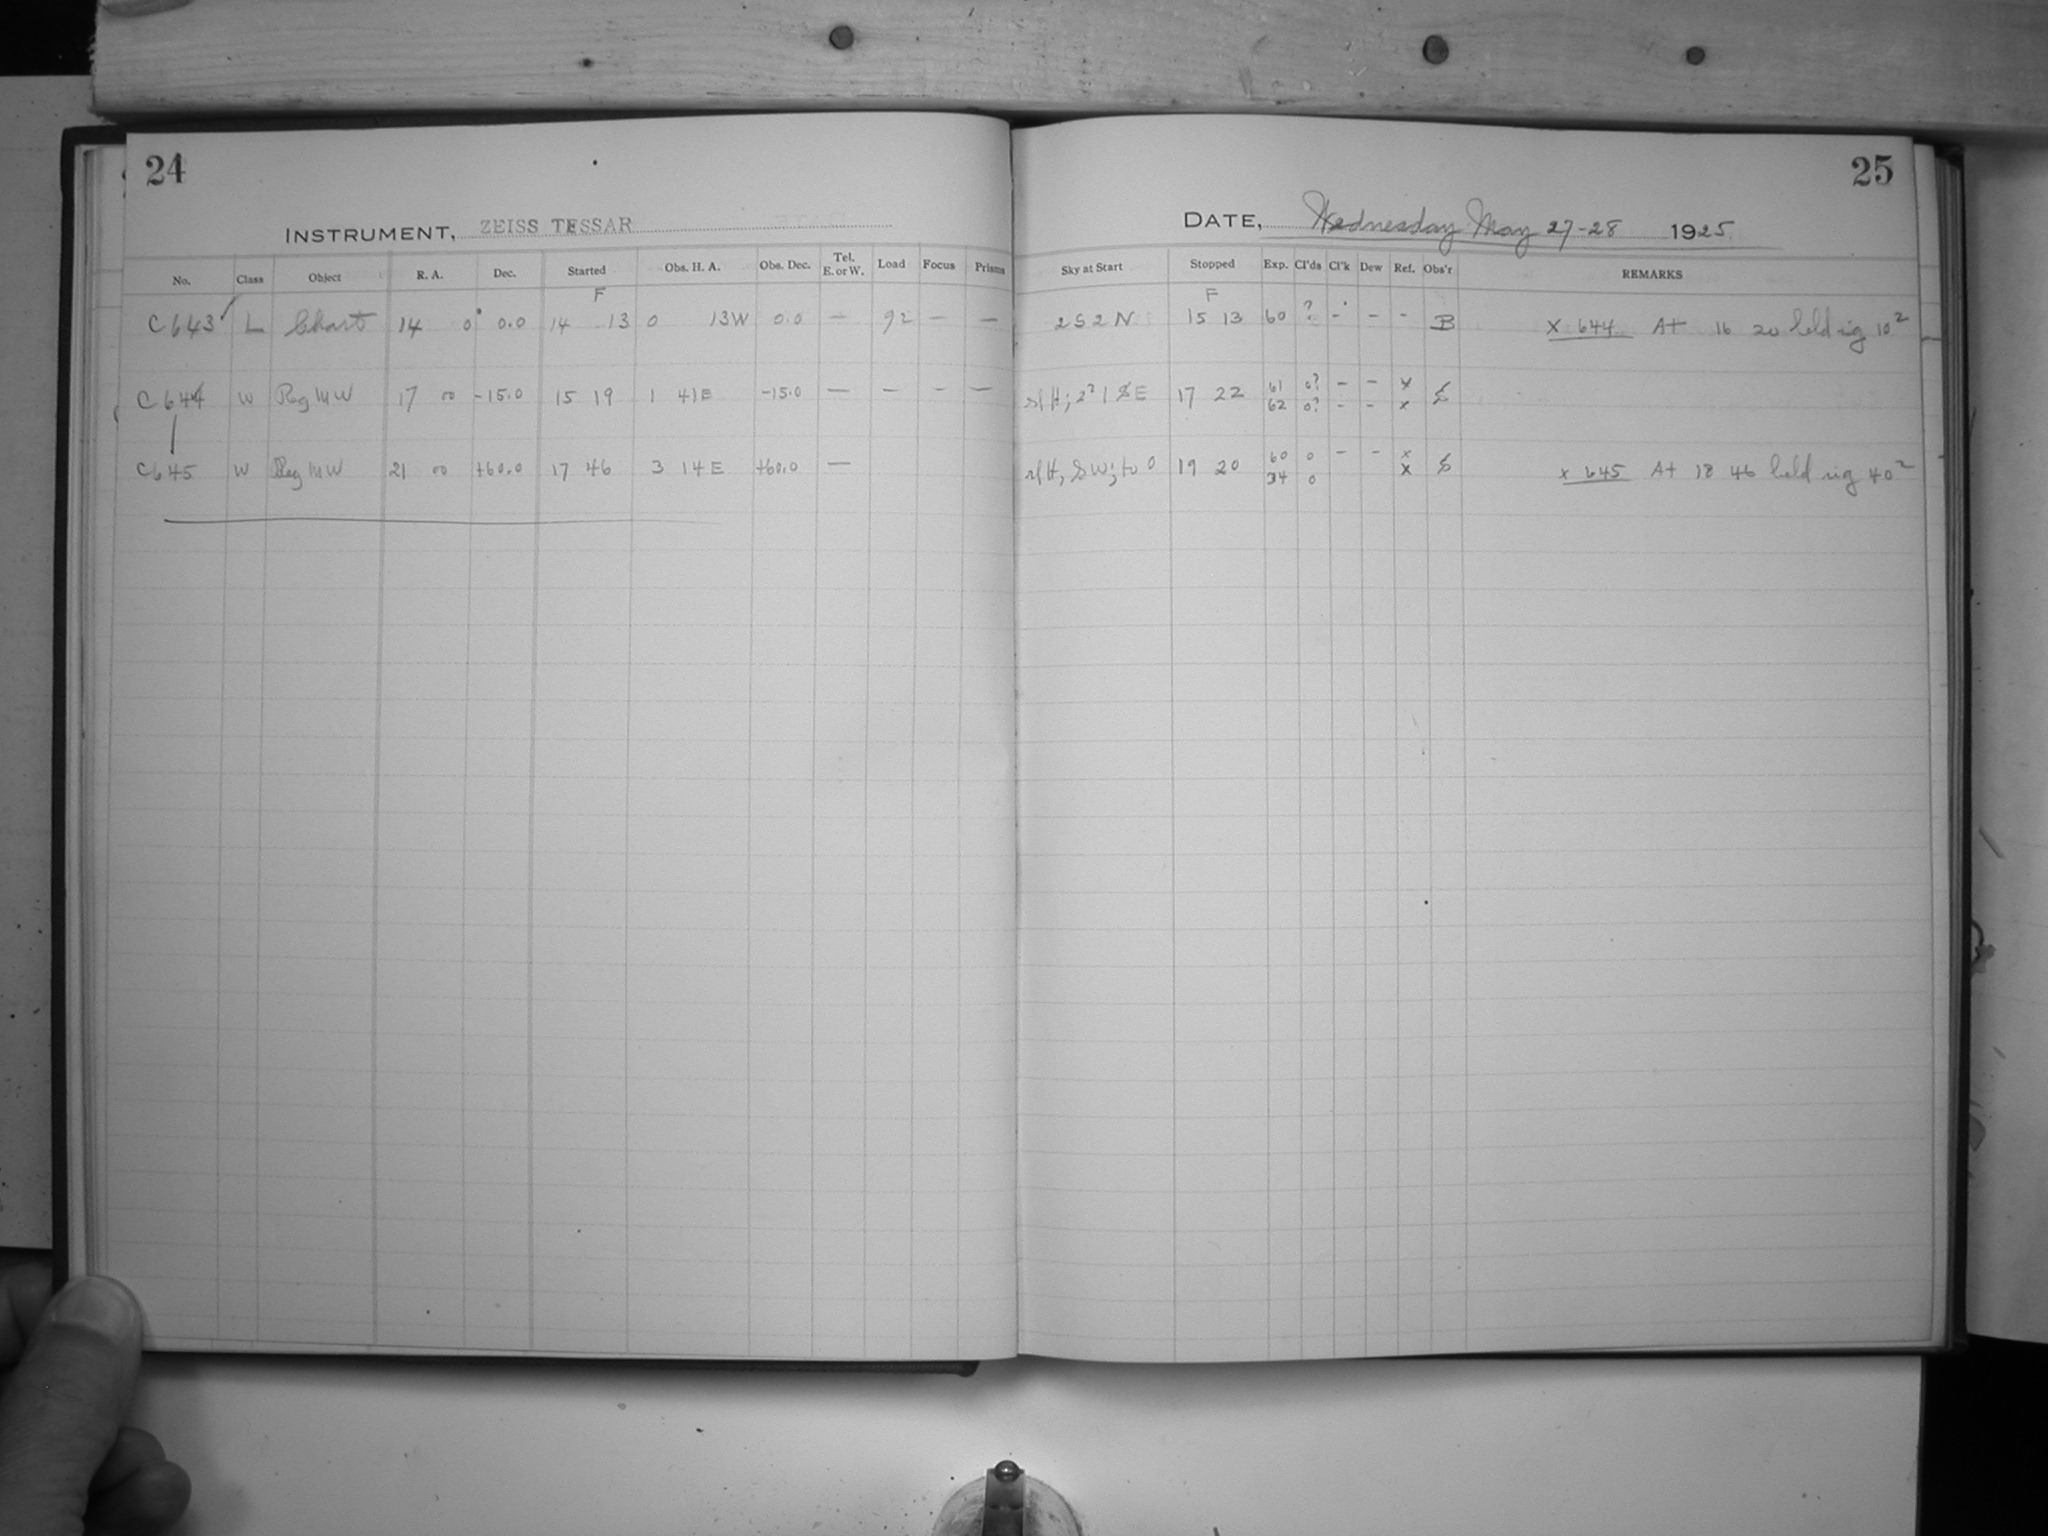 24
INSTRUMENT, ZEISS TESSAR
No. Class Object R. A. Dec. Started Obs. H. A. Obs. Dec. Tel. E. or W. Load Focus Prisms
F
C643 L Chart 14 0 0.0 14 13 0 13W 0.0 — 92 — —
C644 W Reg MW 17 00 -15.0 15 19 1 41E -15.0 — — - —
C645 W Reg MW 21 00 +60.0 17 46 3 14E +60.0 —
25
DATE, Wednesday May 27-28 1925
Sky at Start Stopped Exp. Cl'ds Cl'k Dew Ref. Obs'r REMARKS
F
2 S 2 N 15 13 60 ? - - - B X 644 At 16 20 held rig 10²
17 22 61 0? - - x
62 0? - - x
19 20 60 0 - - x x 645 At 18 46 held rig 40²
34 0 x